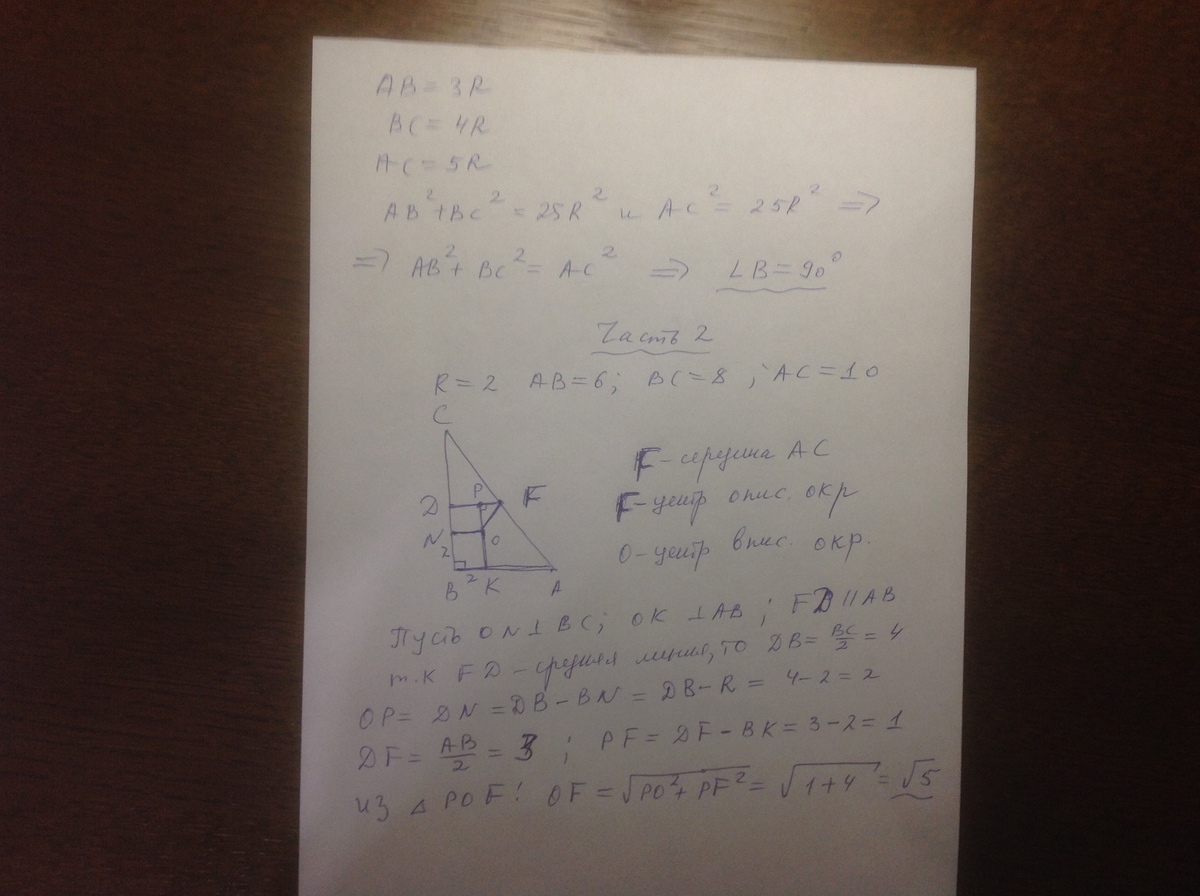 AB = 3R
BC = 4R
AC = 5R
AB² + BC² = 25R² и AC² = 25R² =>
=> AB² + BC² = AC² => ∠B = 90°
Часть 2
R = 2 AB = 6; BC = 8 ; AC = 10
C
F - середина AC
D P F
F - центр опис. окр
N O
2
O - центр впис. окр.
2
B K A
Пусть ON ⊥ BC; OK ⊥ AB ; FD || AB
т.к FD - средняя линия, то DB = BC/2 = 4
OP = DN = DB - BN = DB - R = 4 - 2 = 2
DF = AB/2 = 3 ; PF = DF - BK = 3 - 2 = 1
из △ POF: OF = √(PO² + PF²) = √(1+4) = √5